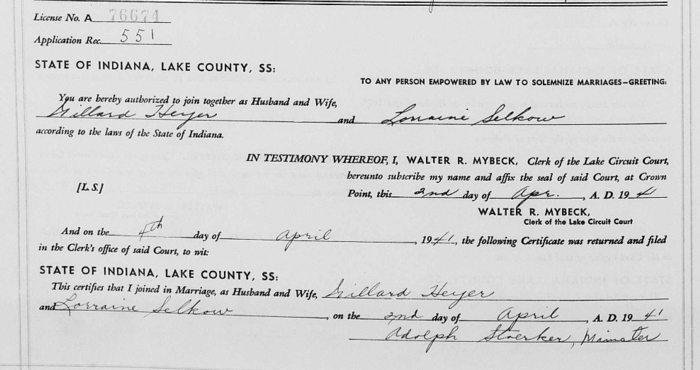 License No. A 76674
Application Rec. 551
STATE OF INDIANA, LAKE COUNTY, SS:
TO ANY PERSON EMPOWERED BY LAW TO SOLEMNIZE MARRIAGES—GREETING:
You are hereby authorized to join together as Husband and Wife,
Gillard Heyer and Lorraine Selkow
according to the laws of the State of Indiana.
IN TESTIMONY WHEREOF, I, WALTER R. MYBECK, Clerk of the Lake Circuit Court,
hereunto subscribe my name and affix the seal of said Court, at Crown
[L.S.] Point, this 2nd day of Apr. , A. D. 1941
WALTER R. MYBECK,
Clerk of the Lake Circuit Court
And on the 4th day of April , 1941, the following Certificate was returned and filed
in the Clerk's office of said Court, to wit:
STATE OF INDIANA, LAKE COUNTY, SS:
This certifies that I joined in Marriage, as Husband and Wife, Gillard Heyer
and Lorraine Selkow , on the 2nd day of April , A. D. 1941
Adolph Stoerker, Minister